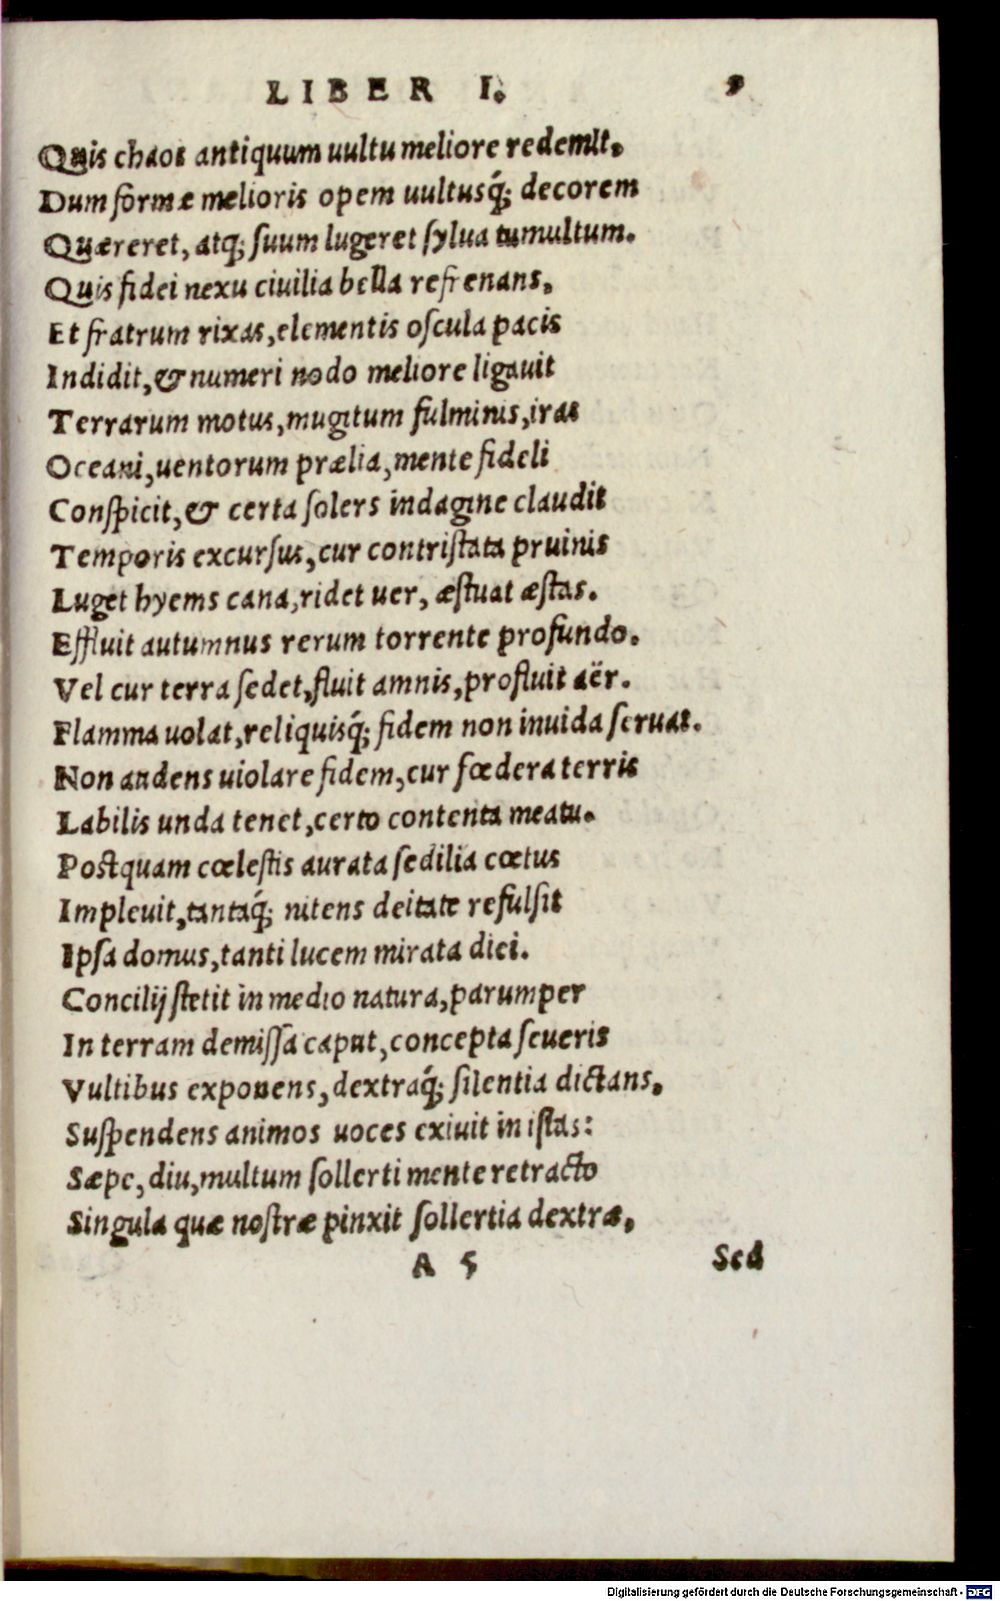 LIBER I. 9
Quis chaos antiquum uultu meliore redemit.
Dum formæ melioris opem uultusq́; decorem
Quæreret, atq; ſuum lugeret ſylua tumultum.
Quis fidei nexu ciuilia bella refrenans,
Et fratrum rixas, elementis oſcula pacis
Indidit, & numeri nodo meliore ligauit
Terrarum motus, mugitum fulminis, iras
Oceani, uentorum prælia, mente fideli
Conſpicit, & certa ſolers indagine claudit
Temporis excurſus, cur contriſtata pruinis
Luget hyems cana, ridet uer, æſtuat æſtas.
Effluit autumnus rerum torrente profundo.
Vel cur terra ſedet, fluit amnis, profluit aër.
Flamma uolat, reliquisq́; fidem non inuida ſeruat.
Non audens uiolare fidem, cur fœdera terris
Labilis unda tenet, certo contenta meatu.
Postquam cœleſtis aurata ſedilia cœtus
Impleuit, tantaq́; nitens deitate refulſit
Ipſa domus, tanti lucem mirata diei.
Concilij ſtetit in medio natura, parumper
In terram demiſſa caput, concepta ſeueris
Vultibus exponens, dextraq́; ſilentia dictans,
Suſpendens animos uoces exiuit in iſtas:
Sæpe, diu, multum ſollerti mente retracto
Singula quæ noſtræ pinxit ſollertia dextræ,
A 5 Sed
Digitalisierung gefördert durch die Deutsche Forschungsgemeinschaft - DFG